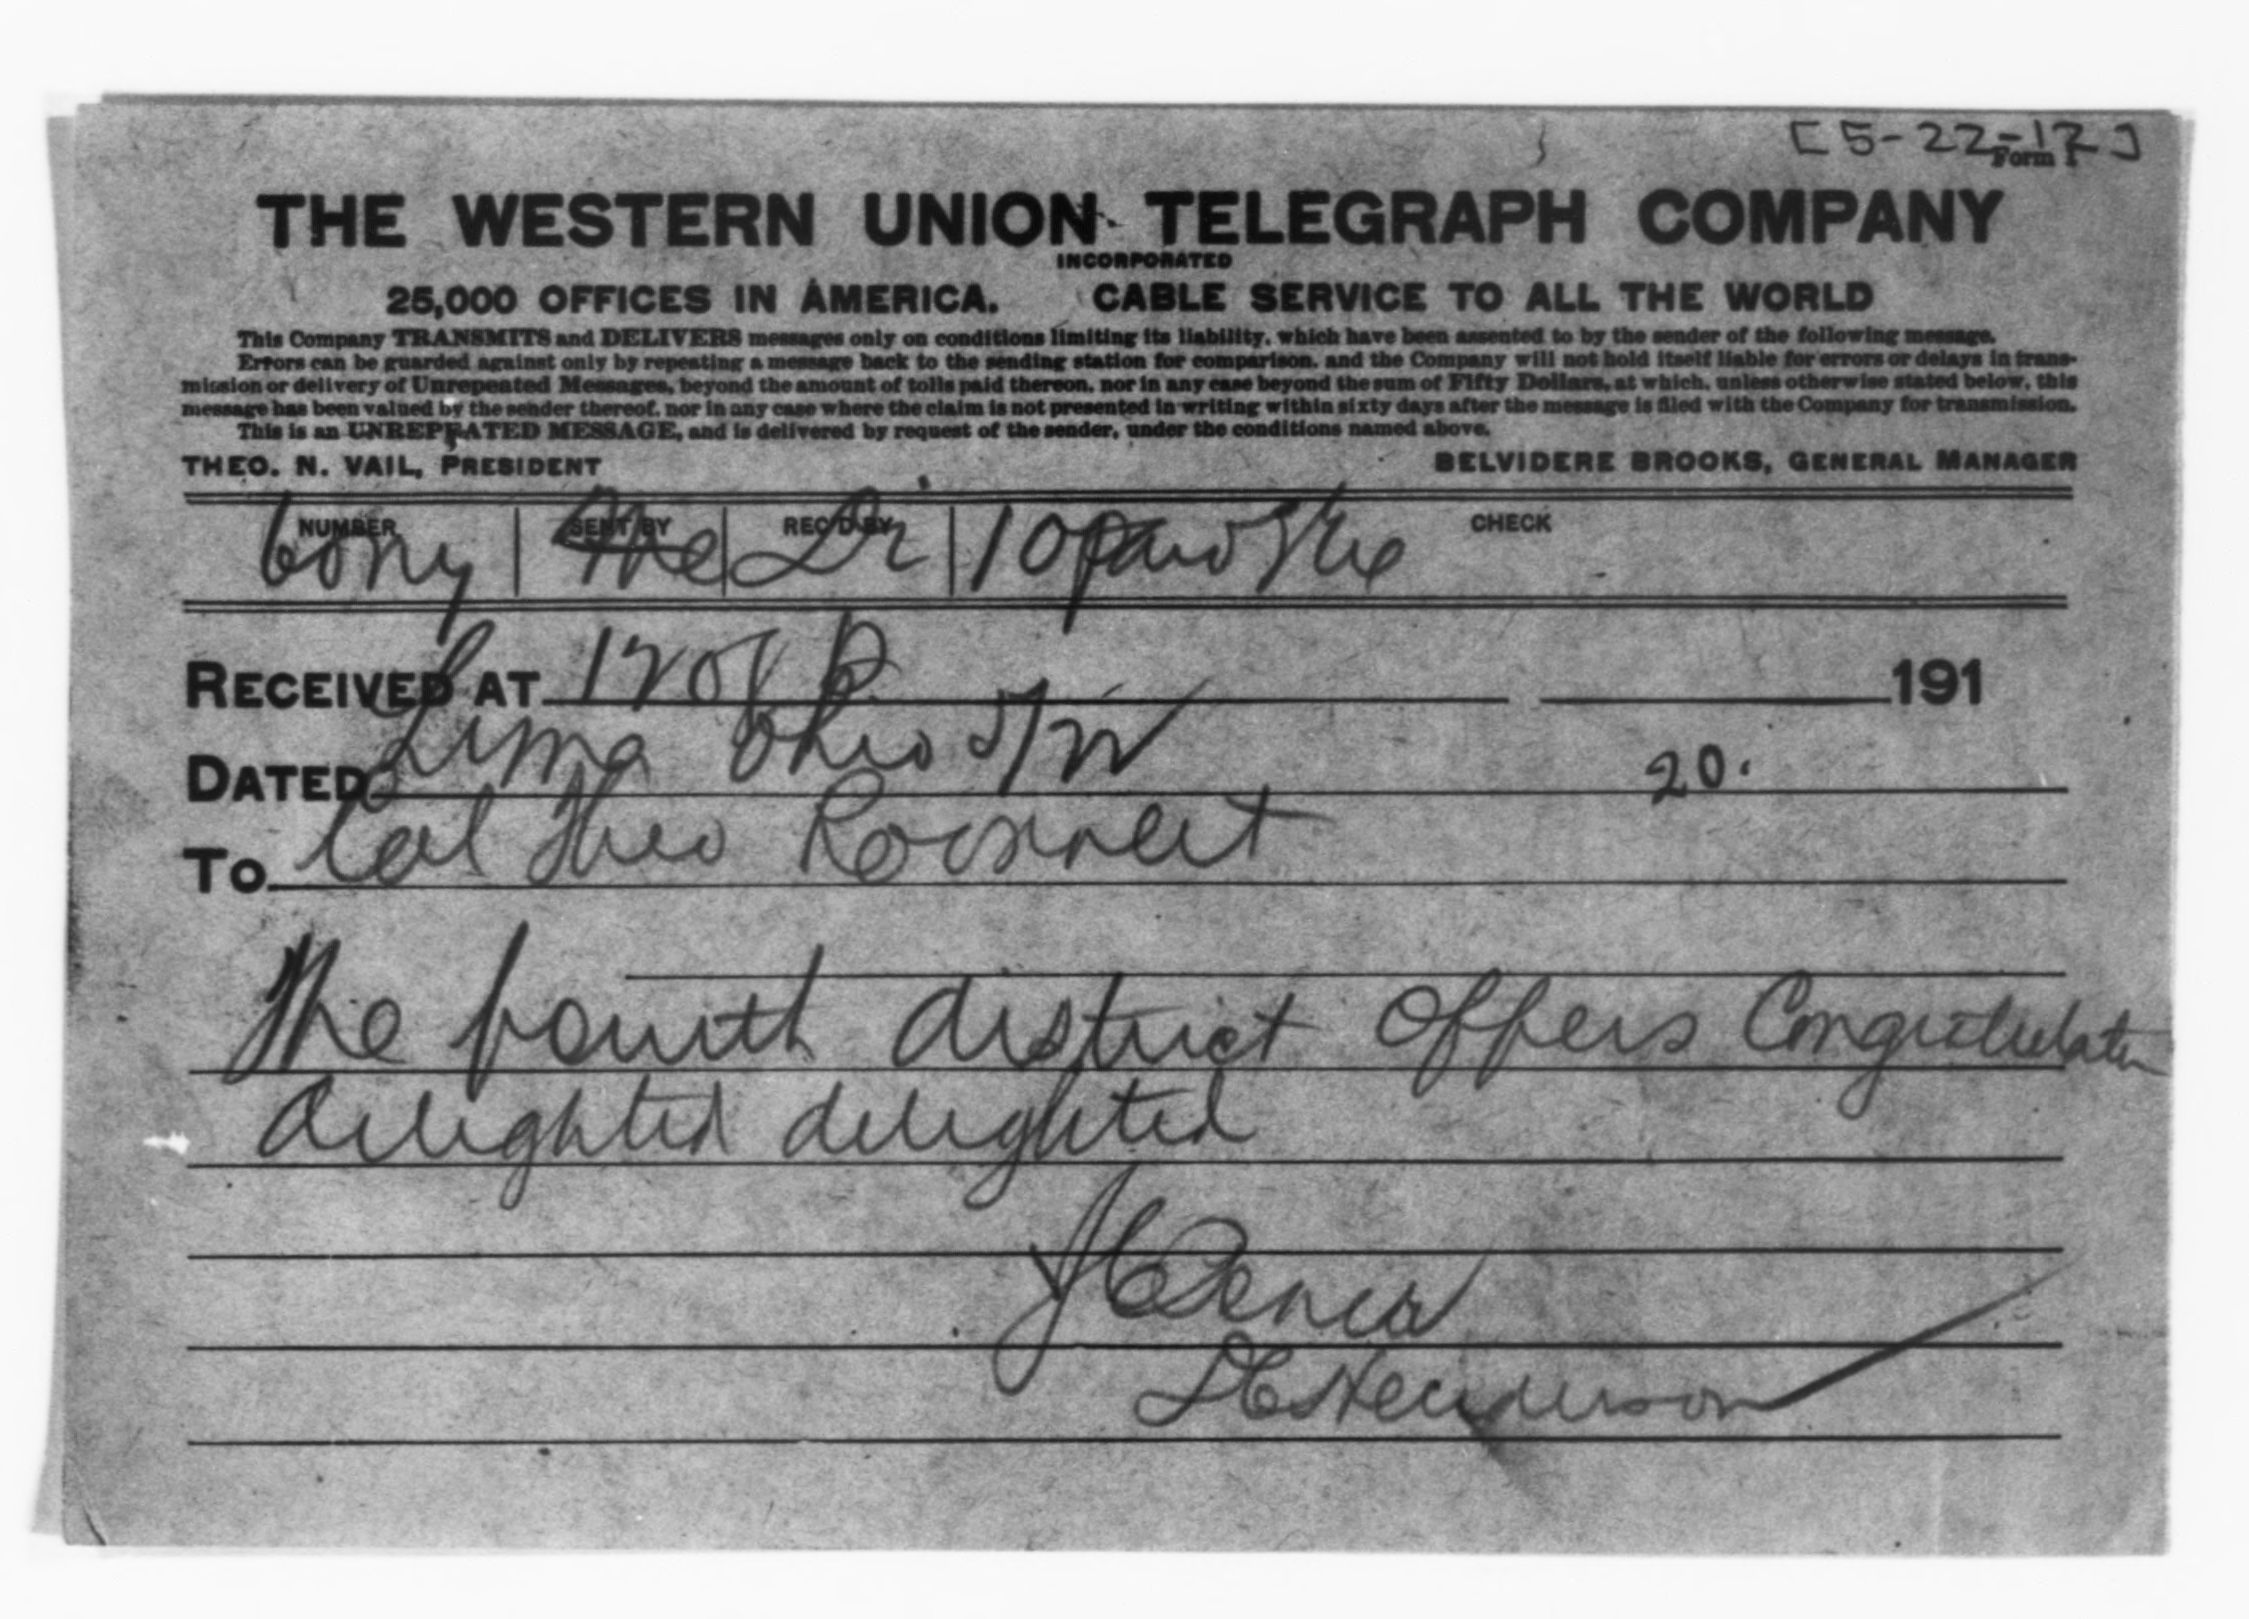 [5-22-12]
Form 1
THE WESTERN UNION TELEGRAPH COMPANY
INCORPORATED
25,000 OFFICES IN AMERICA. CABLE SERVICE TO ALL THE WORLD
This Company TRANSMITS and DELIVERS messages only on conditions limiting its liability, which have been assented to by the sender of the following message.
Errors can be guarded against only by repeating a message back to the sending station for comparison, and the Company will not hold itself liable for errors or delays in trans-
mission or delivery of Unrepeated Messages, beyond the amount of tolls paid thereon, nor in any case beyond the sum of Fifty Dollars, at which, unless otherwise stated below, this
message has been valued by the sender thereof, nor in any case where the claim is not presented in writing within sixty days after the message is filed with the Company for transmission.
This is an UNREPEATED MESSAGE, and is delivered by request of the sender, under the conditions named above.
THEO. N. VAIL, PRESIDENT BELVIDERE BROOKS, GENERAL MANAGER
NUMBER SENT BY REC'D BY CHECK
10 paid
RECEIVED AT 191
DATED Lima Ohio 5/22 20.
TO Col Theo Roosevelt
The fourth district offers Congratulation
delighted delighted
Henderson